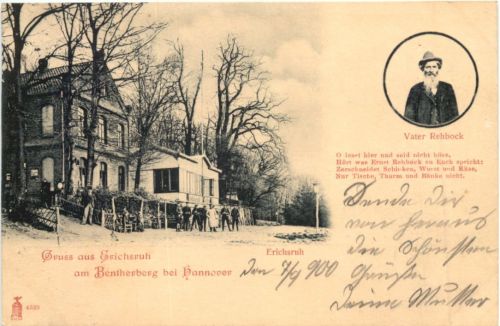 Vater Rehbock
O leset hier und seid nicht böse,
Hört was Ernst Rehbock zu Euch spricht:
Zerschneidet Schinken, Wurst und Käse,
Nur Tische, Thurm und Bänke nicht.
Erichsruh
Gruss aus Erichsruh
am Bentherberg bei Hannover
den 7/9 900
Sende Dir
von Herzen
die Schönsten
Grüße
Deine Mutter
4539